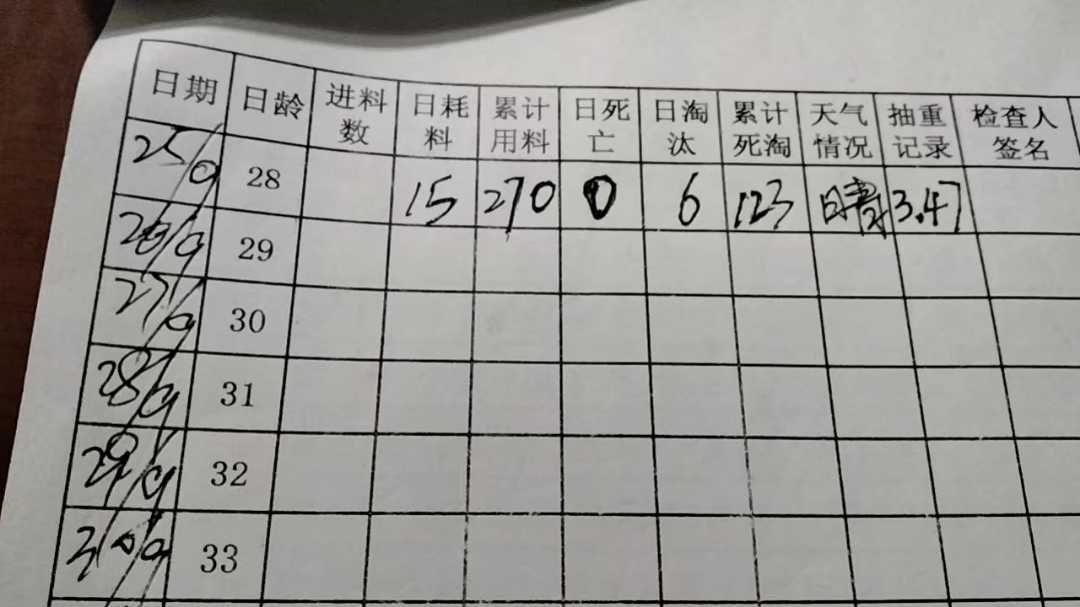 日期 日龄 进料数 日耗料 累计用料 日死亡 日淘汰 累计死淘 天气情况 抽重记录 检查人签名
25/9 28 15 270 0 6 123 晴 3.47
26/9 29
27/9 30
28/9 31
29/9 32
30/9 33